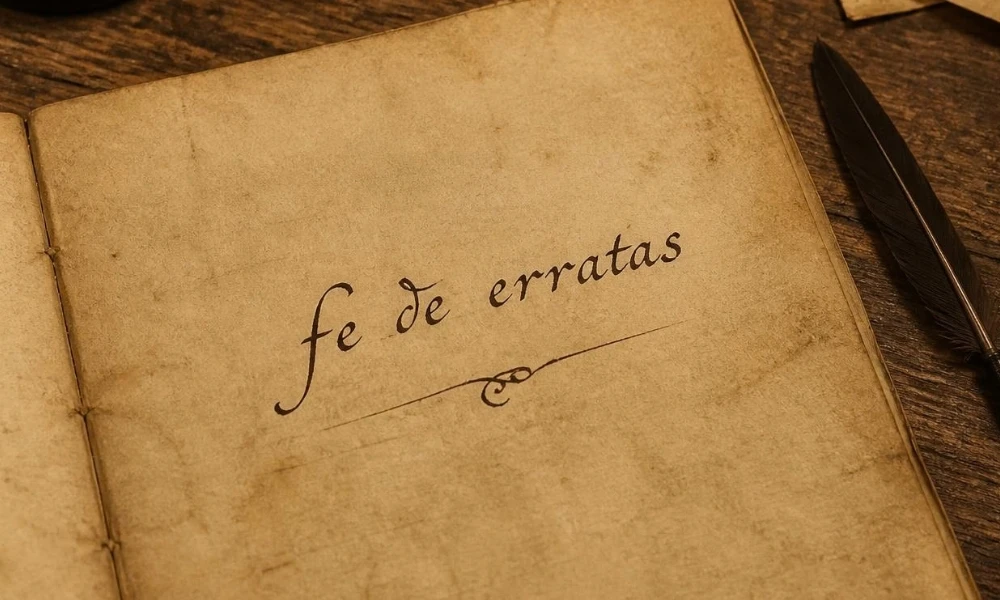 fe de erratas